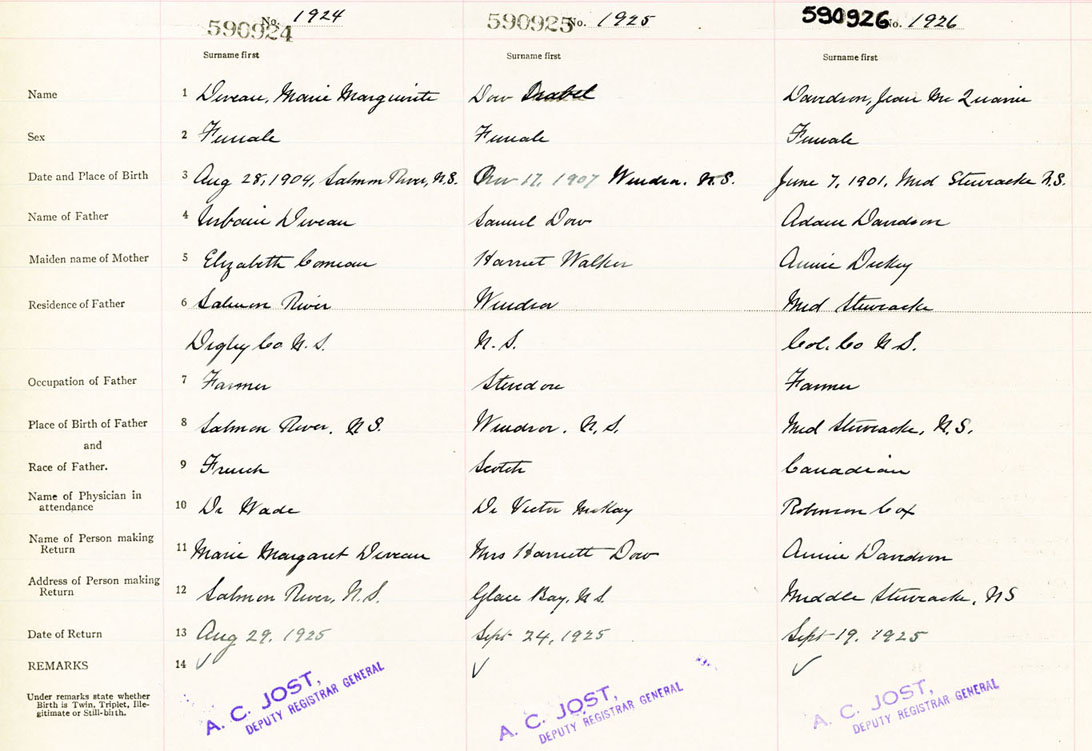 590924 No. 1924 590925 No. 1925 590926 No. 1926
Surname first Surname first Surname first
Name 1 Deveau, Marie Marguerite Dow Davidson, Jean
Sex 2 Female Female Female
Date and Place of Birth 3 Aug 28, 1904, Salmon River, N.S. 17, 1907 Windsor. N.S. June 7, 1901, Mid Stewiacke N.S.
Name of Father 4 Urbain Deveau Samuel Dow Adam Davidson
Maiden name of Mother 5 Elizabeth Comeau Harriet Walker Annie Dickey
Residence of Father 6 Salmon River Windsor Mid Stewiacke
Digby Co N.S. N.S. Col. Co N.S.
Occupation of Father 7 Farmer Farmer
Place of Birth of Father 8 Salmon River, N.S. Windsor, N.S. Mid Stewiacke, N.S.
and
Race of Father. 9 French Scotch Canadian
Name of Physician in
attendance 10 Dr Wade Dr Victor McKay Robinson Cox
Name of Person making
Return 11 Marie Margaret Deveau Mrs Harriett Dow Annie Davidson
Address of Person making
Return 12 Salmon River, N.S. Glace Bay, N.S. Middle Stewiacke, NS
Date of Return 13 Aug 29, 1925 Sept 24, 1925 Sept 19, 1925
REMARKS 14 ✓ ✓ ✓
Under remarks state whether
Birth is Twin, Triplet, Ille-
gitimate or Still-birth.
A. C. JOST, A. C. JOST, A. C. JOST,
DEPUTY REGISTRAR GENERAL DEPUTY REGISTRAR GENERAL DEPUTY REGISTRAR GENERAL